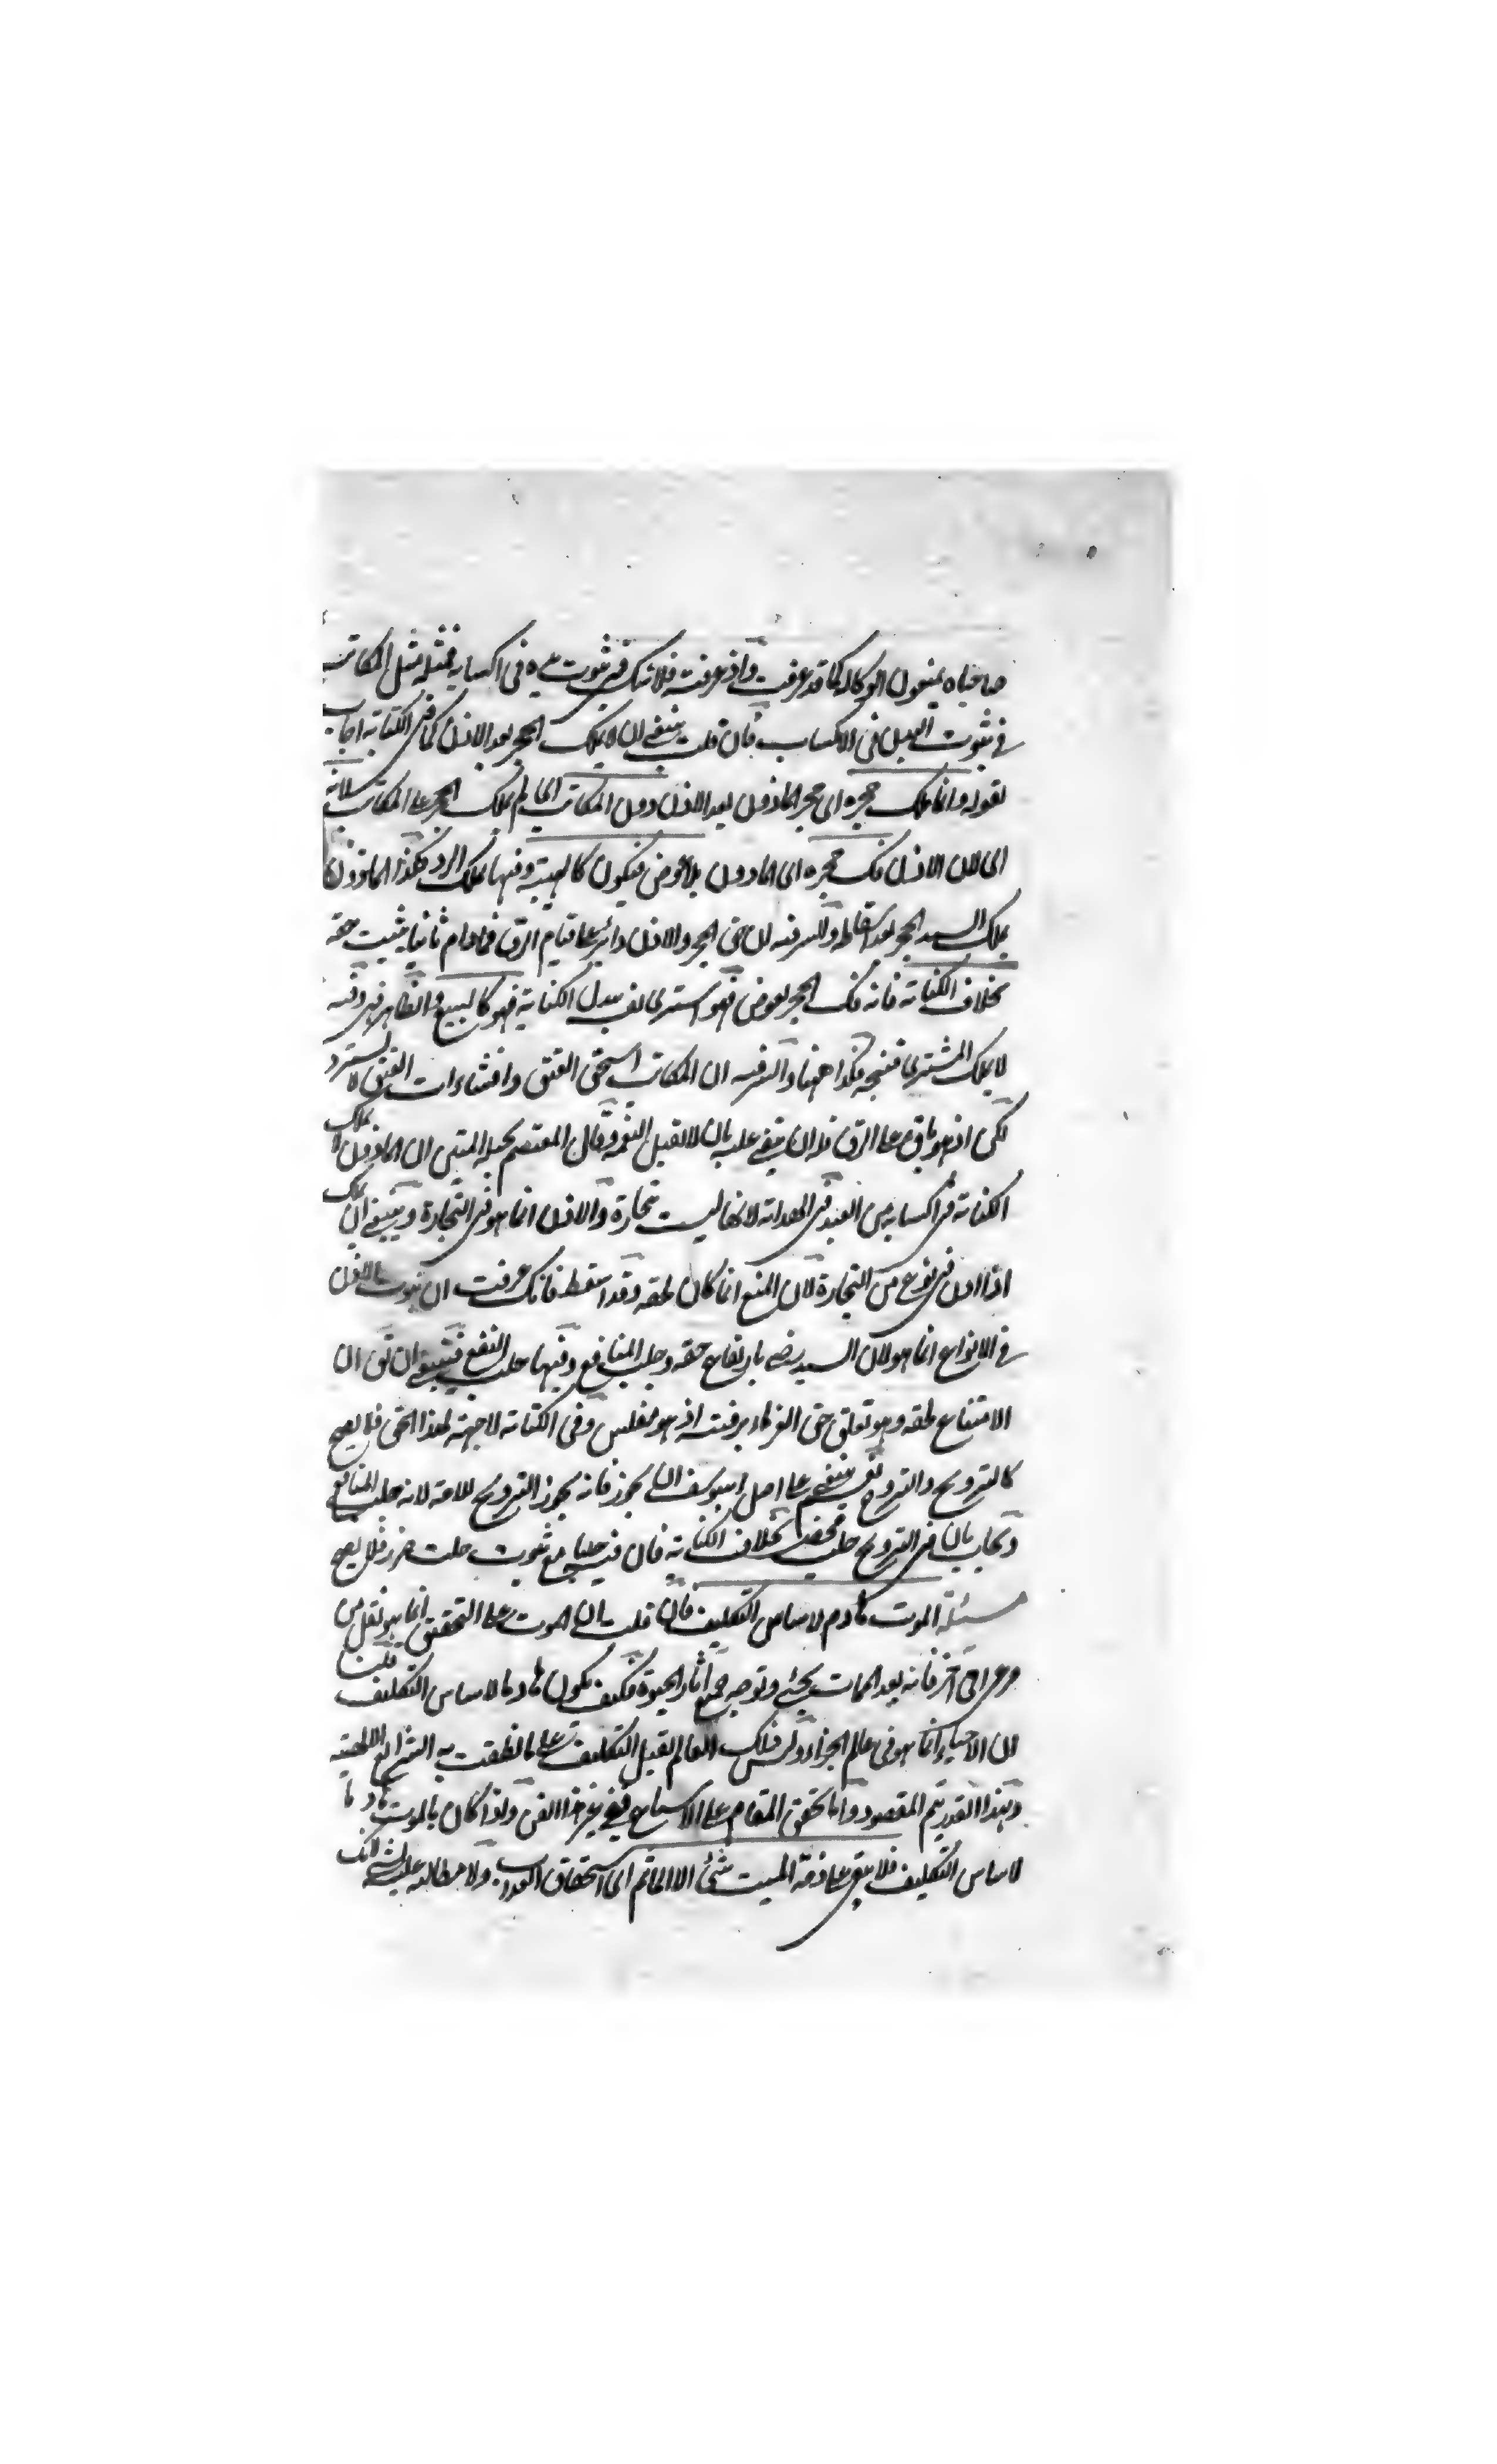 صاحباه يمنعون الوكالة كما قد عرفت واذ عرفت فلا شك في ثبوت يده في اكسابه فمثله مثل المكاتب
في ثبوت اليد في الاكساب فان قلت ينبغي ان لا يملك الحجر بعد الاذن كما في الكتابة اجاب
بقوله وانما يملك حجره اى حجر الماذون بعد الاذن دون المكاتب اى لم يملك الحجر على المكاتب لانه
اى لان الاذن فك حجره اى الماذون بلا عوض فيكون كالهبة وفيها يملك الرد فكذا الماذون
يملك السيد الحجر بعد اسقاطه والسر فيه ان حق الحجر والاذن دائر على قيام الرق فمادام ثانيا يثبت حقه
بخلاف الكتابة فانه فك الحجر بعوض فهو اشترى نفسه ببدل الكتابة فهو كالبيع والظاهر في وفيه
لا يملك المشترى فسخه فكذا ههنا والسر فيه ان المكاتب استحق العتق وافشاءات العتق لا يسترد
لكن اذ هو باق على الرق فله ان يبقى عليه بان لا يقبل وقال المعتصم بحبله المتين ان الماذون لا يملك
الكتابة في اكسابه من العبد في الهداية لانها ليست تجارة والاذن انما هو في التجارة وينبغي ان يملك
اذا اذن في نوع من التجارة لان المنع انما كان لحقه وقد اسقط فانك عرفت ان ثبوت الاذن
في الانواع انما هو لان السيد رضى بارتفاع حقه وجلب المنافع وفيها جلب النفع فينبغي ان يق ان
الامتناع لحقه وهو تعلق حق الغرماء برقبته اذ هو مفلس وفي الكتابة لا جهة لهذا الحق فلا يصح
كالتزويج والتزوج نعم ينبغي على اصل ابيوسف ان يجوز فانه يجوز التزويج للامة لانه جلب المنافع
ويجاب بان في التزويج جلب محض بخلاف الكتابة فان فيه جلبا مع ثبوت جلب ضرر فلا يصح
مسئلة الموت هادم لاساس التكليف فان قلت ان الموت على التحقيق انما هو نقل من
مرعى اخر فانه بعد الممات يجئ وتوجه جميع اثار الحيوة فكيف يكون هادما لاساس التكليف قلنا
ان الاحياء انما هو في عالم الجزاء وليس ذلك العالم يقبل التكليف على ما نطقت به الشرائع الالهية
وبهذا القدر يتم المقصود واما تحقيق المقام على الاسباغ ففي غير هذا الفن واذا كان الموت هادما
لاساس التكليف فلا يبقى على ذمة الميت شئ الا الماثم اى استحقاق العذاب ولا مطالبة عليه